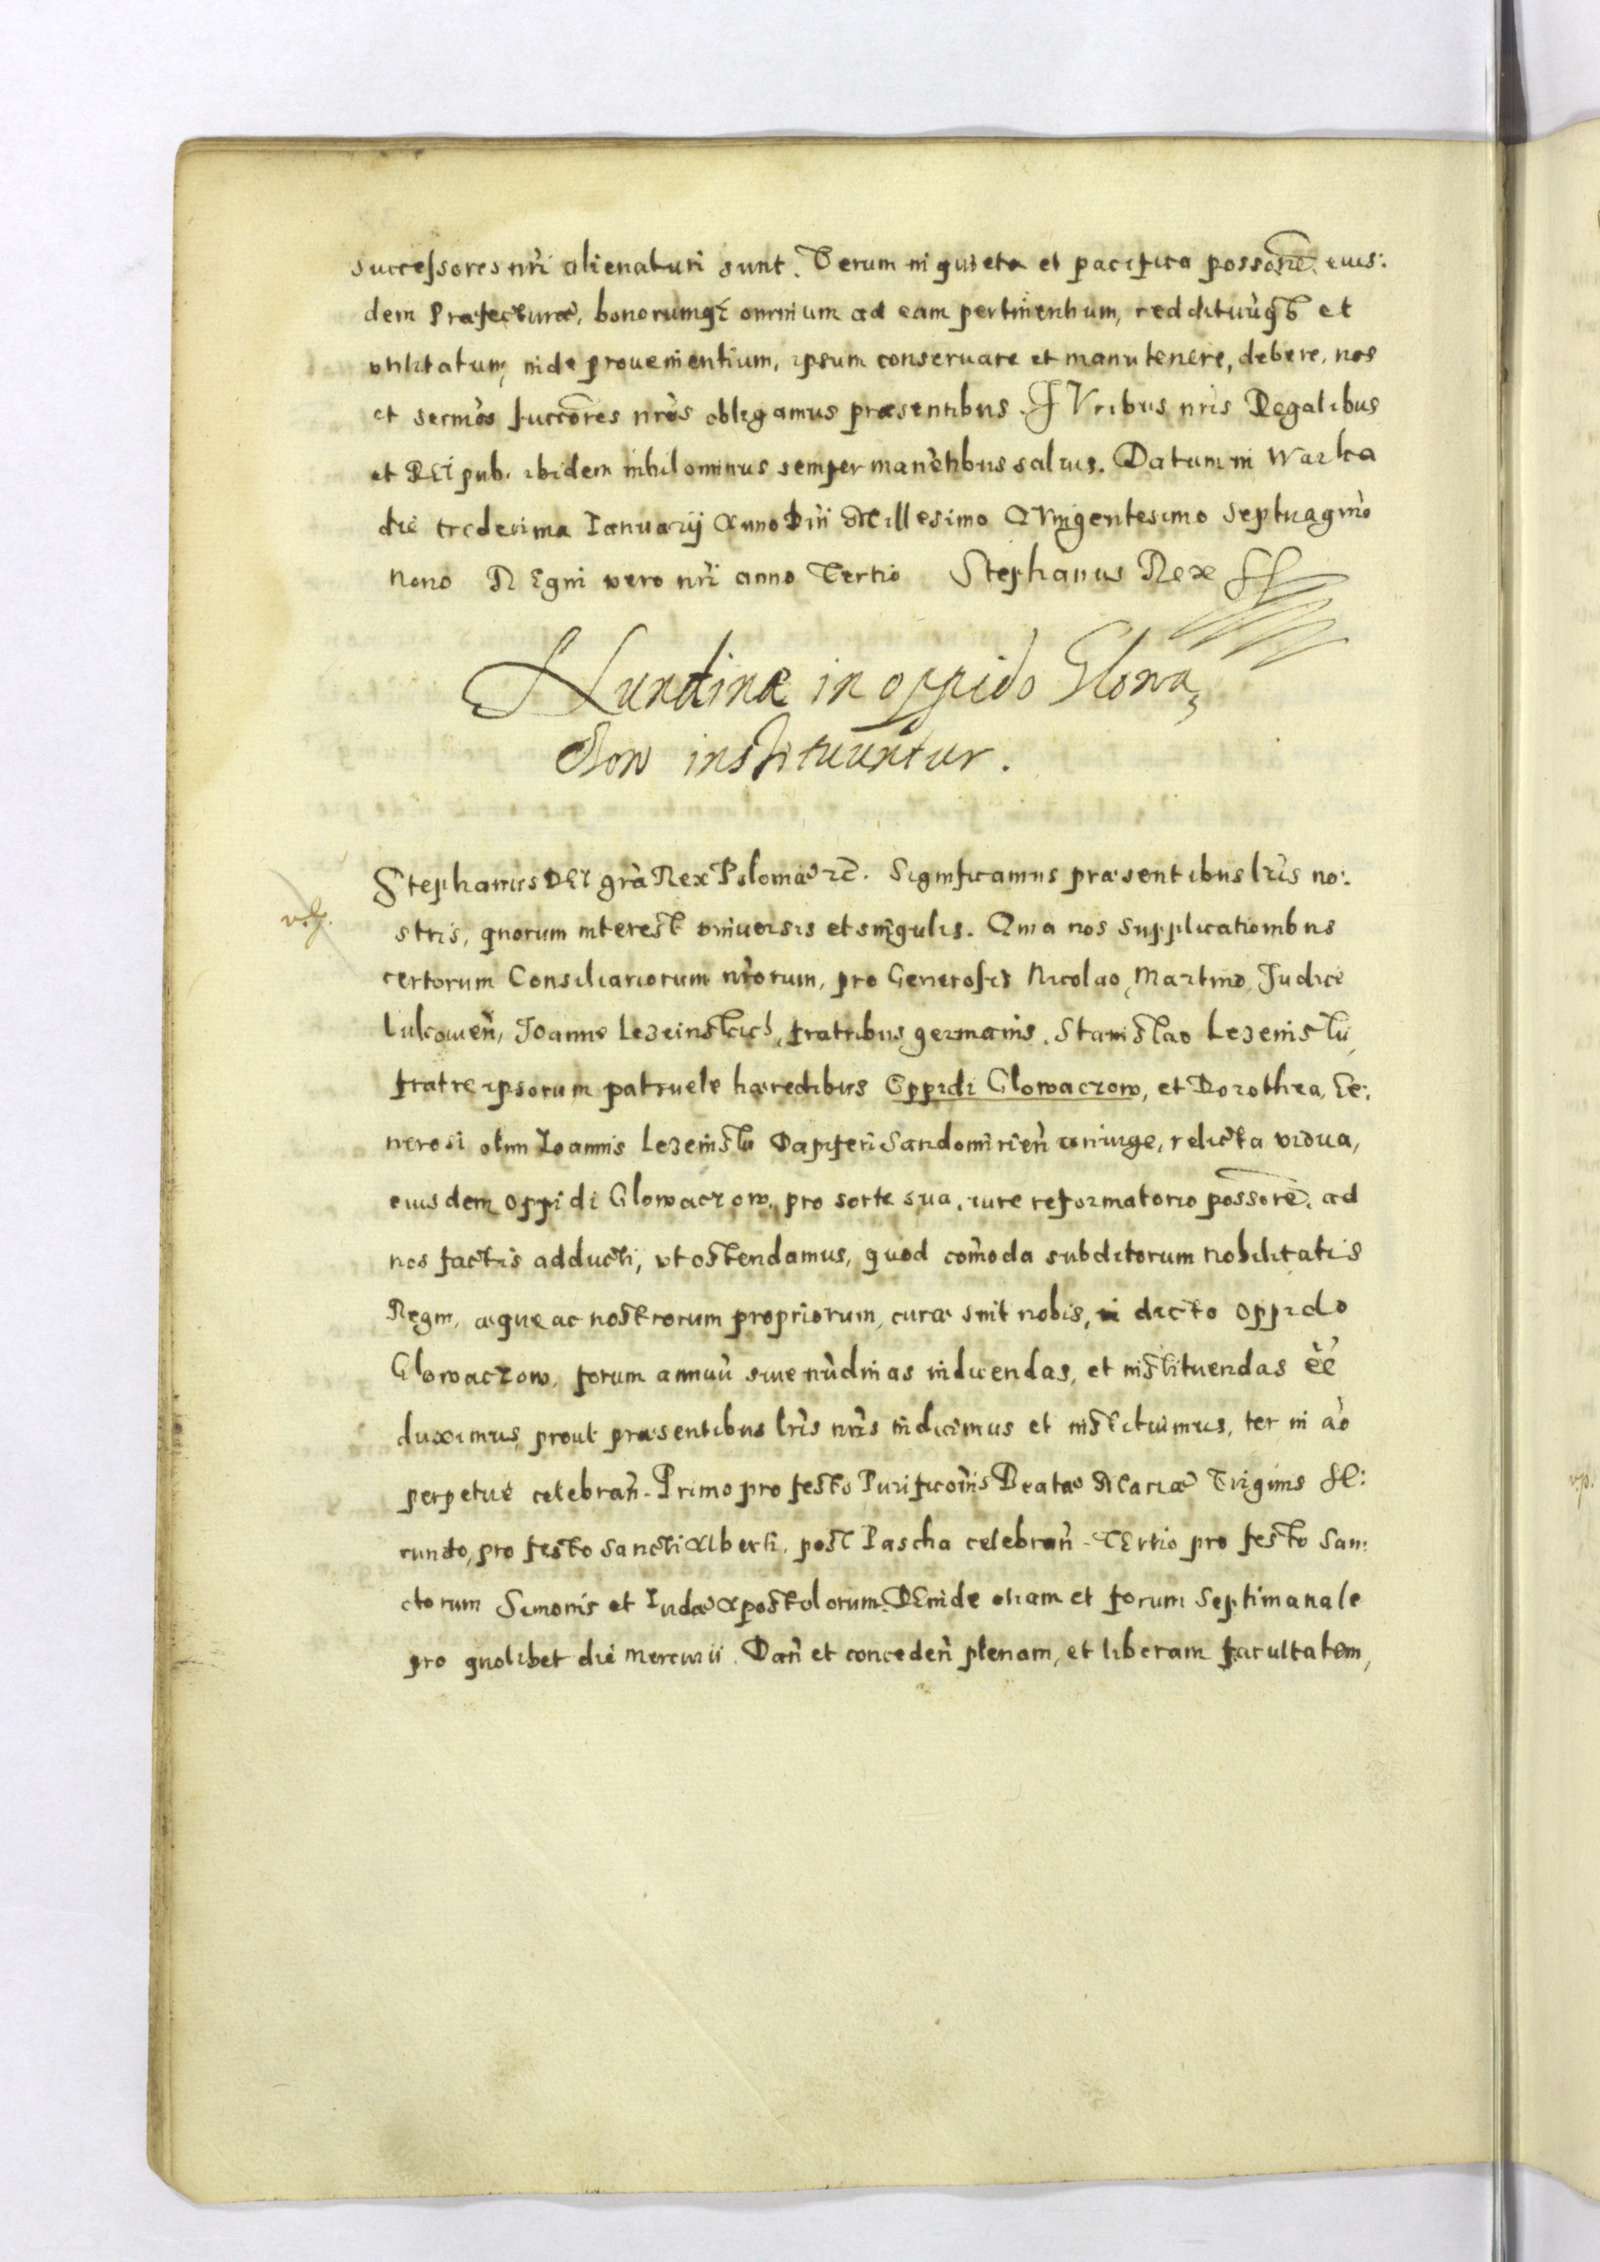 successores nri alienaturi sunt. Verum in quieta et pacifica possone eius:
dem Præfecturæ, bonorumqȝ omnium ad eam pertinentium, reddituūqȝ et
vtilitatum, inde prouenientium, ipsum conseruare et manutenere, debere, nos
et sermos succores nros obligamus præsentibus. IVribus nris Regalibus
et REI pub. ibidem nihilominus semper manētibus saluis. Datum in Warka
die tredecima Ianuarij Anno Dni Millesimo QVingentesimo Septuagmo
Nono REgni vero nri anno Tertio Stephanus Rex
Nundinæ in oppido Glowa,
czow instituuntur.
Stephanus DEI gra Rex Poloniæ etc. Significamus præsentibus lris no:
stris, quorum interest vniuersis et singulis. Quia nos supplicationibus
certorum Consiliariorum nrorum, pro Generosis Nicolao, Martino, Judice
Lukouien, Joanne Lezeinskich, fratribus germanis, Stanislao Lezenski,
fratre ipsorum patruele hæredibus Oppidi Glowaczow, et Dorothea, Ge:
nerosi olim Ioannis Lezenski Dapiferi Sandomirien coniuge, relicta vidua,
eiusdem oppidi Glowaczow, pro sorte sua, iure reformatorio possore. ad
nos factis adducti, vt ostendamus, quod comoda subditorum nobilitatis
Regni, æque ac nostrorum propriorum, curæ sint nobis, in dicto oppido
Glowaczow, forum annuū siue nūdinas indicendas, et instituendas ēē
duximus, prout præsentibus lris nris indicimus et instituimus, ter in ao
perpetue celebran. Primo pro festo Purificonis Beatæ Mariæ Virginis SE:
cundo, pro festo Sancti Alberti, post Pascha celebran. TErtio pro festo San:
ctorum Simonis et Iudæ Apostolorum. DEinde etiam et forum Septimanale
pro quolibet die Mercurii. Dan et conceden plenam, et liberam facultatem,